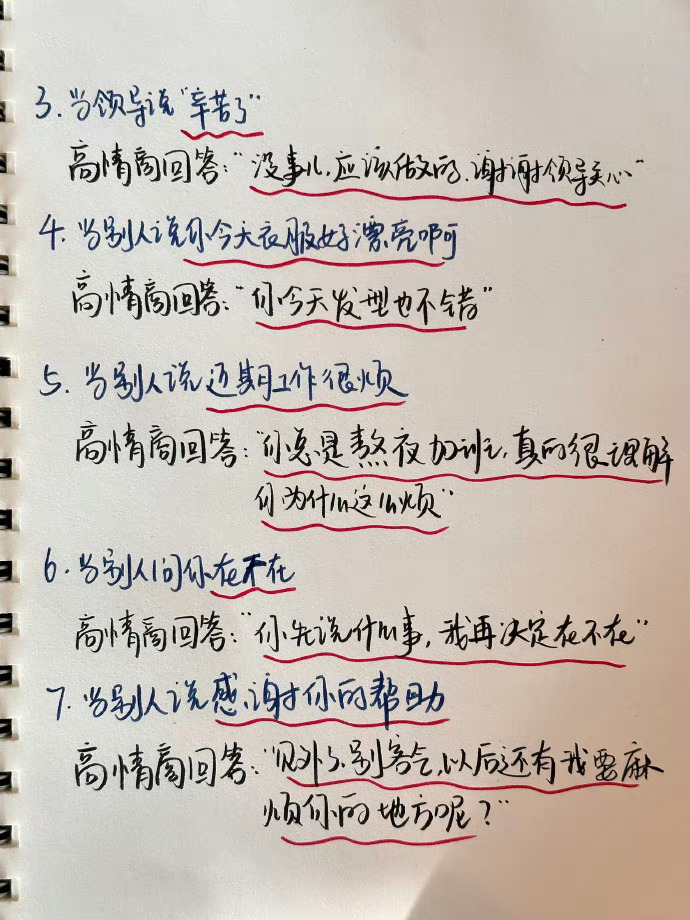 3.当领导说"辛苦了"
高情商回答:"没事儿,应该做的、谢谢领导关心"
4.当别人说你今天衣服好漂亮啊
高情商回答:"你今天发型也不错"
5.当别人说近期工作很烦
高情商回答:"你总是熬夜加班,真的很理解
你为什么这么烦"
6.当别人问你在不在
高情商回答:"你先说什么事,我再决定在不在"
7.当别人说感谢你的帮助
高情商回答:"见外了,别客气,以后还有我要麻
烦你的地方呢?"